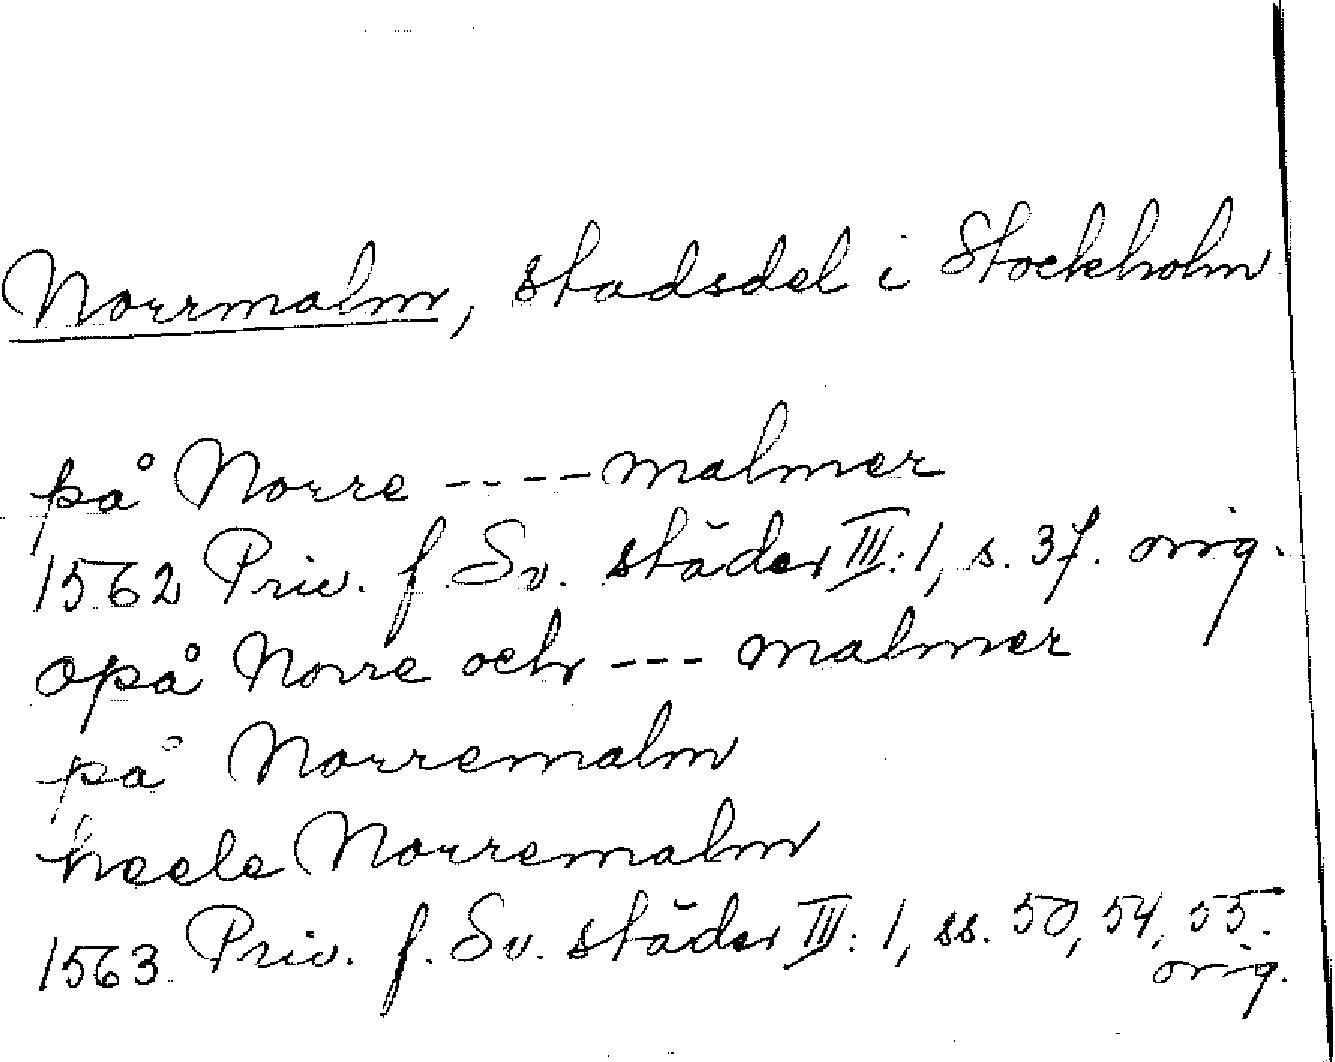 Norrmalm, stadsdel i Stockholm
på Norre ---- malmer
1562 Priv. f. Sv. städer III: 1, s. 37. orig.
opå Norre och --- malmer
på Norremalm
heele Norremalm
1563 Priv. f. Sv. städer III: 1, ss. 50, 54, 55.
orig.